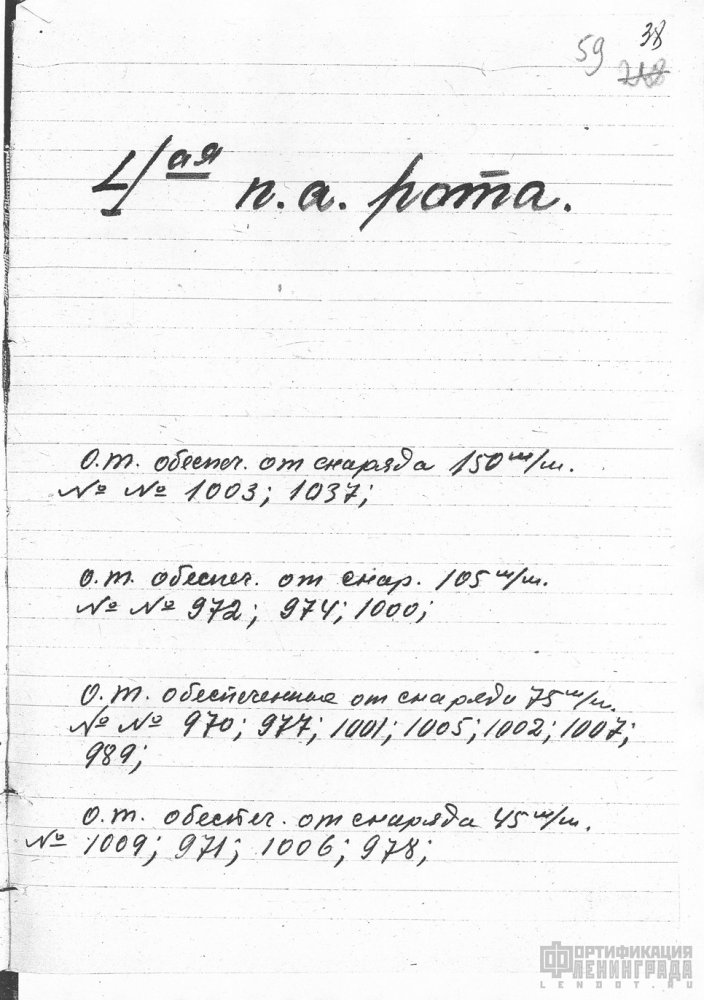 38
59
4/ая п.а. рота.
О.т. обеспеч. от снаряда 150 м/м.
№ № 1003; 1037;
О.т. обеспеч. от снар. 105 м/м.
№ № 972; 974; 1000;
О.т. обеспеченные от снаряда 75 м/м.
№ № 970; 977; 1001; 1005; 1002; 1007;
989;
О.т. обеспеч. от снаряда 45 м/м.
№ 1009; 971; 1006; 978;
ФОРТИФИКАЦИЯ
ЛЕНИНГРАДА
LENDOT.RU